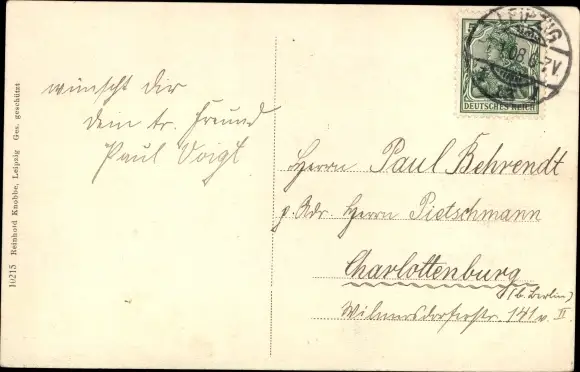 wünscht dir
dein tr. Freund
Paul Voigt
10215 Reinhold Knobbe, Leipzig Ges. geschützt
LEIPZIG
5
DEUTSCHES REICH
Herrn Paul Behrendt
p. Adr. Herrn Pietschmann
Charlottenburg
(b. Berlin)
Wilmersdorferstr. 141 v. II